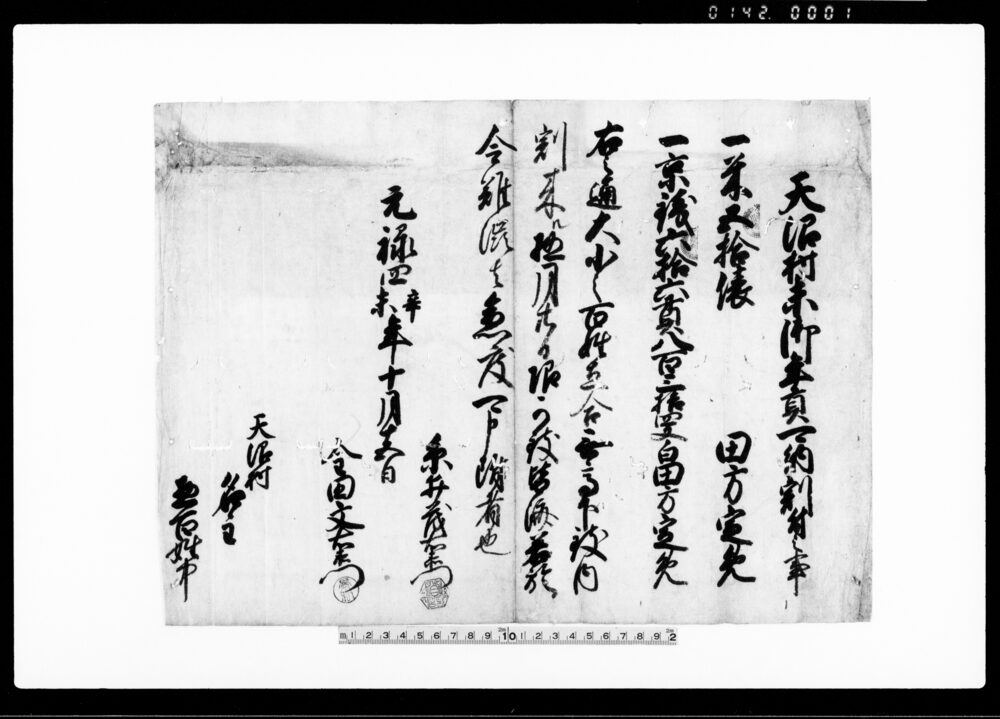 0142. 0001
天沼村未御年貢可納割付之事
一米五拾俵 田方定免
一京銭六拾六貫八百三拾四文 畠田方定免
右之通大小之百姓立合無高下致内
割来ル極月十日限ニ可致皆済若於
令難渋者急度可申付者也
元禄四年辛未十月十五日
糸井茂右衛門
金田文右衛門
天沼村
名主
惣百姓中
m 1 2 3 4 5 6 7 8 9 10 1 2 3 4 5 6 7 8 9 2